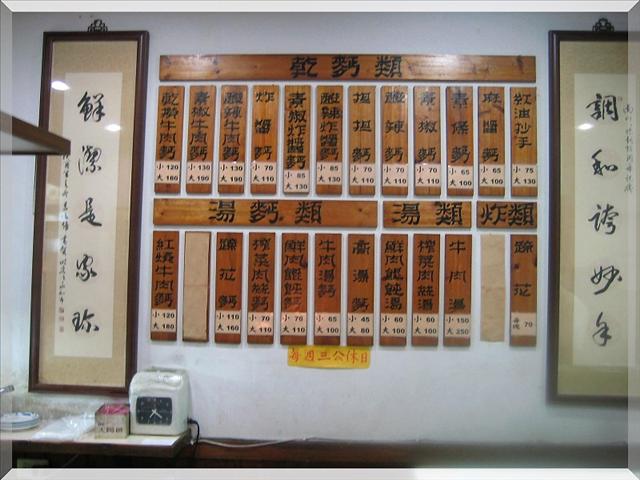 鮮潔是家珍
乾麪類
乾拌牛肉麪 小120 大180
青椒牛肉麪 小130 大190
酸辣牛肉麪 小130 大190
炸醬麪 小70 大110
青椒炸醬麪 小85 大130
酸辣炸醬麪 小85 大130
担担麪 小70 大110
酸辣麪 小70 大110
青椒麪 小70 大110
素條麪 小65 大100
麻醬麪 小65 大100
紅油抄手 小75 大130
湯麪類
湯類
炸類
紅燒牛肉麪 小120 大180
蹄花麪 小110 大160
榨菜肉絲麪 小70 大110
鮮肉餛飩麪 小70 大110
牛肉湯麪 小65 大100
高湯麪 小45 大80
鮮肉餛飩湯 小60 大100
榨菜肉絲湯 小60 大100
牛肉湯 小150 大250
蹄花 每塊70
每週三公休日
調和誇妙手